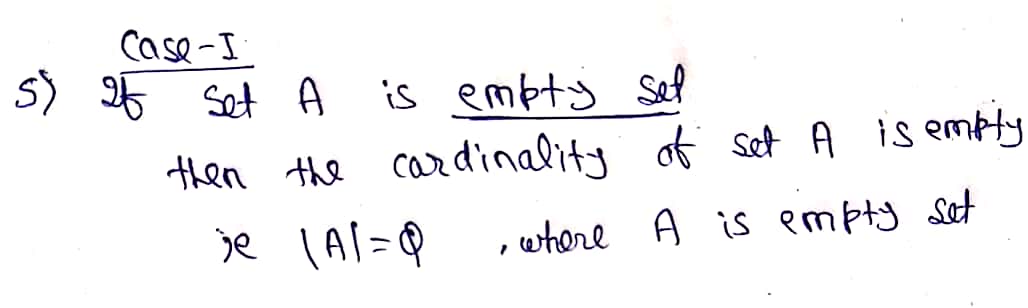 Case-I
5) If Set A is empty set
then the cardinality of set A is empty
ie |A|=φ , where A is empty set